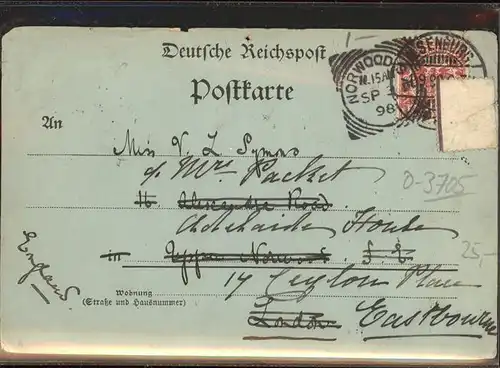 1-
Deutsche Reichspost
Postkarte
NORWOOD
11.15AM
SP
98
An
Miss V. L. Symons
c/o Mrs Packet
16 Alexandra Road
Adelaide House
in Upper Norwood. S. E.
17 Ceylon Place
London Eastbourne
England
Wohnung
(Straße und Hausnummer)
0-3705
25,-